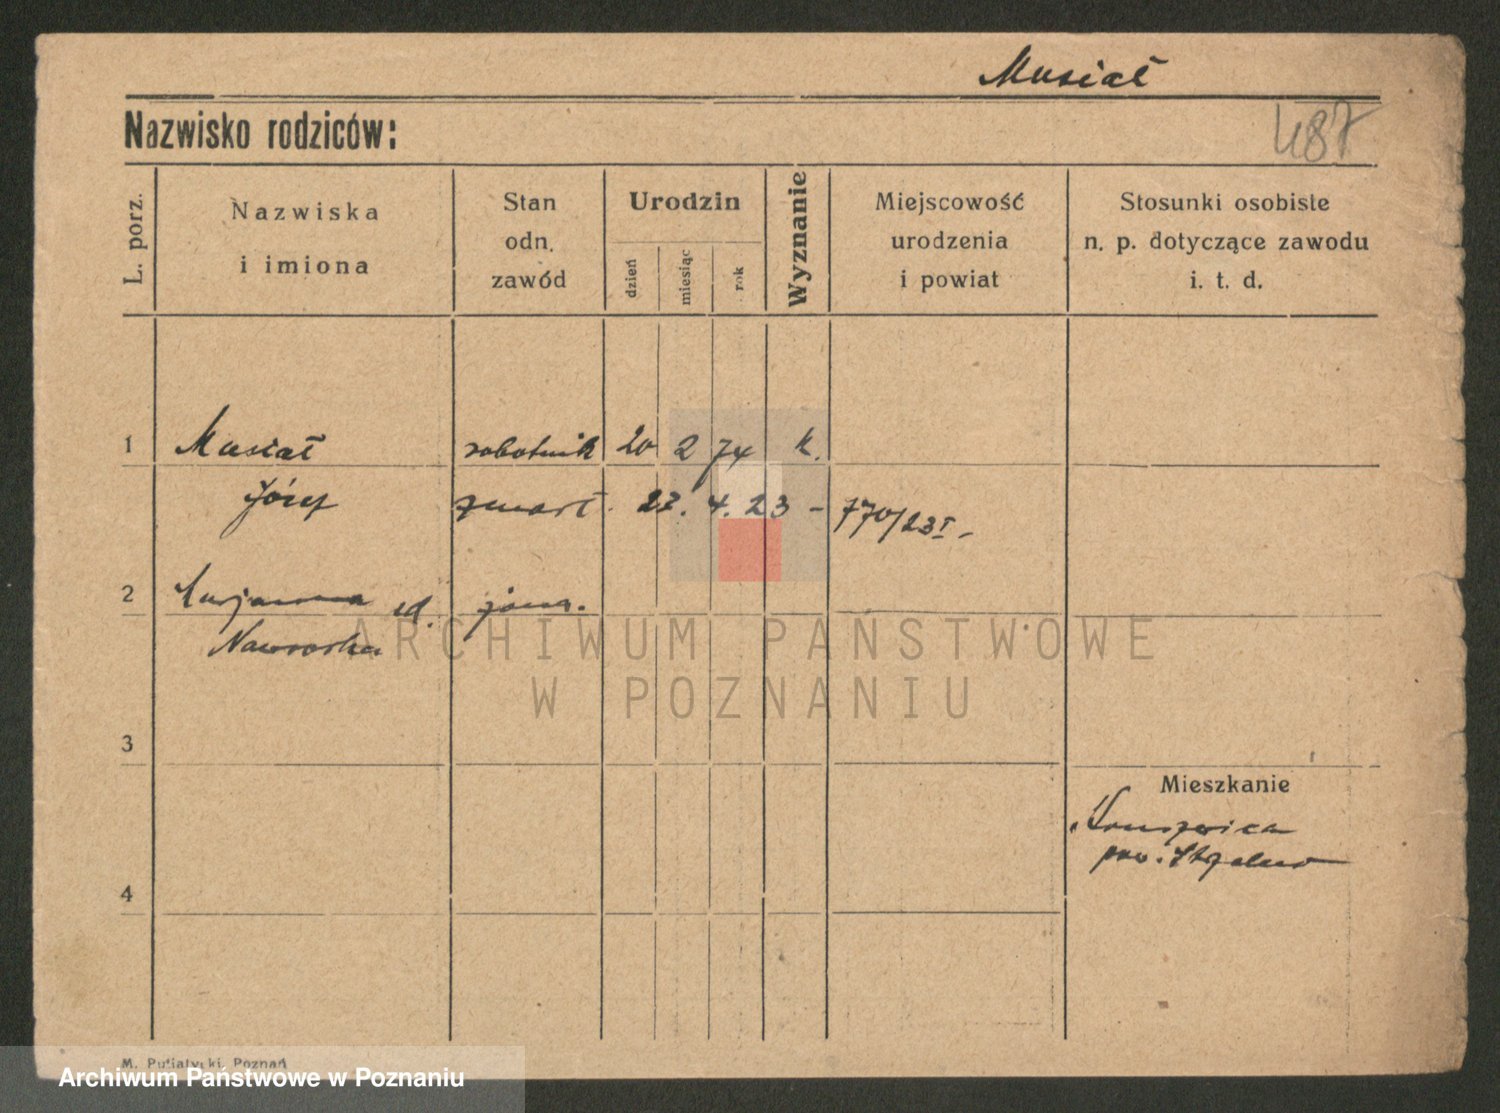 Musiał
Nazwisko rodziców:
487
L. porz.
Nazwiska
i imiona
Stan
odn.
zawód
Urodzin
dzień
miesiąc
rok
Wyznanie
Miejscowość
urodzenia
i powiat
Stosunki osobiste
n. p. dotyczące zawodu
i. t. d.
1 Musiał robotnik 20 2 74 k.
Józef zmarł. 27. 4. 23 - 770/23 I -
2 Marjanna żona.
Nawrocka
ARCHIWUM PAŃSTWOWE
W POZNANIU
3
Mieszkanie
Kruszwica
pow. Strzelno
4
M. Putiatycki, Poznań
Archiwum Państwowe w Poznaniu